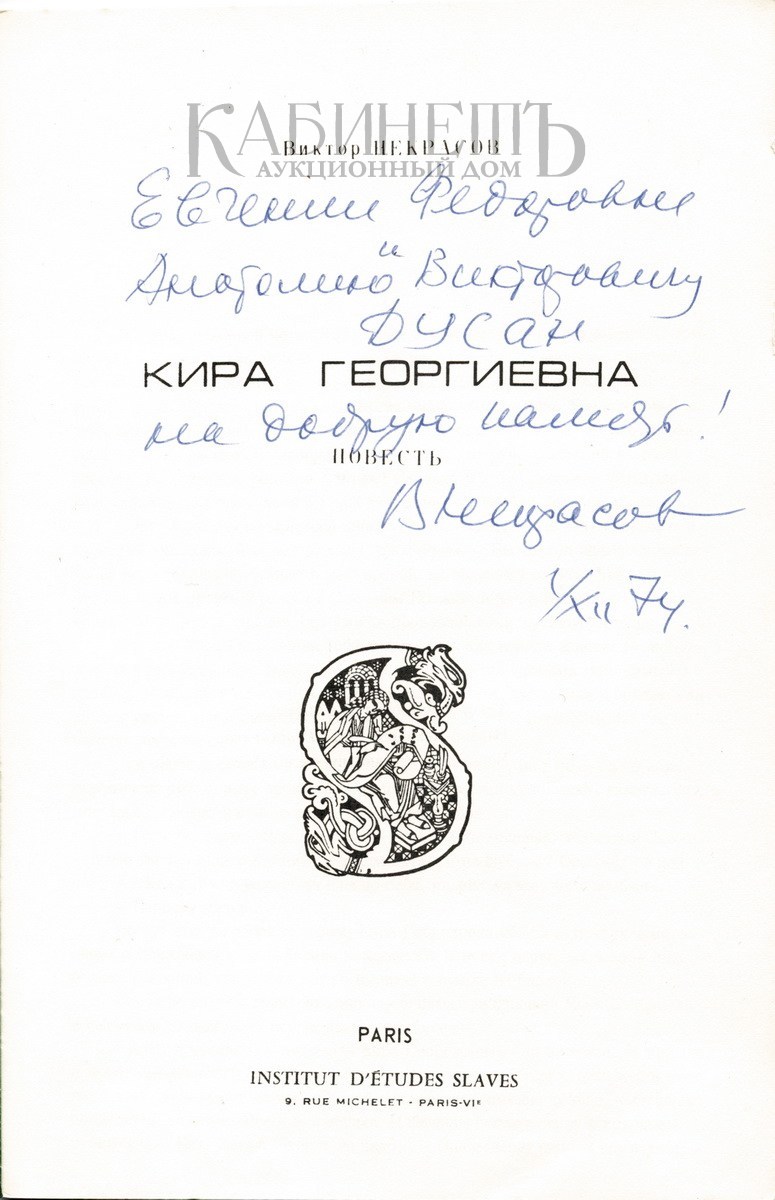 КАБИНЕТЪ
Виктор НЕКРАСОВ
АУКЦИОННЫЙ ДОМ
Евгении Федоровне
и
Анатолию Викторовичу
ДУСАН
КИРА ГЕОРГИЕВНА
на добрую память!
ПОВЕСТЬ
ВНекрасов
1/XII 74.
PARIS
INSTITUT D'ÉTUDES SLAVES
9, RUE MICHELET - PARIS-VIᴱ